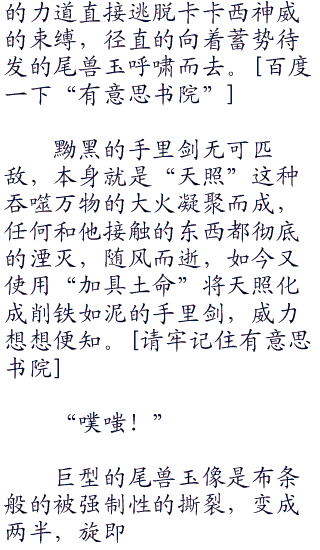 的力道直接逃脱卡卡西神威
的束缚，径直的向着蓄势待
发的尾兽玉呼啸而去。[百度
一下“有意思书院”]
黝黑的手里剑无可匹
敌，本身就是“天照”这种
吞噬万物的大火凝聚而成，
任何和他接触的东西都彻底
的湮灭，随风而逝，如今又
使用“加具土命”将天照化
成削铁如泥的手里剑，威力
想想便知。[请牢记住有意思
书院]
“噗嗤！”
巨型的尾兽玉像是布条
般的被强制性的撕裂，变成
两半，旋即